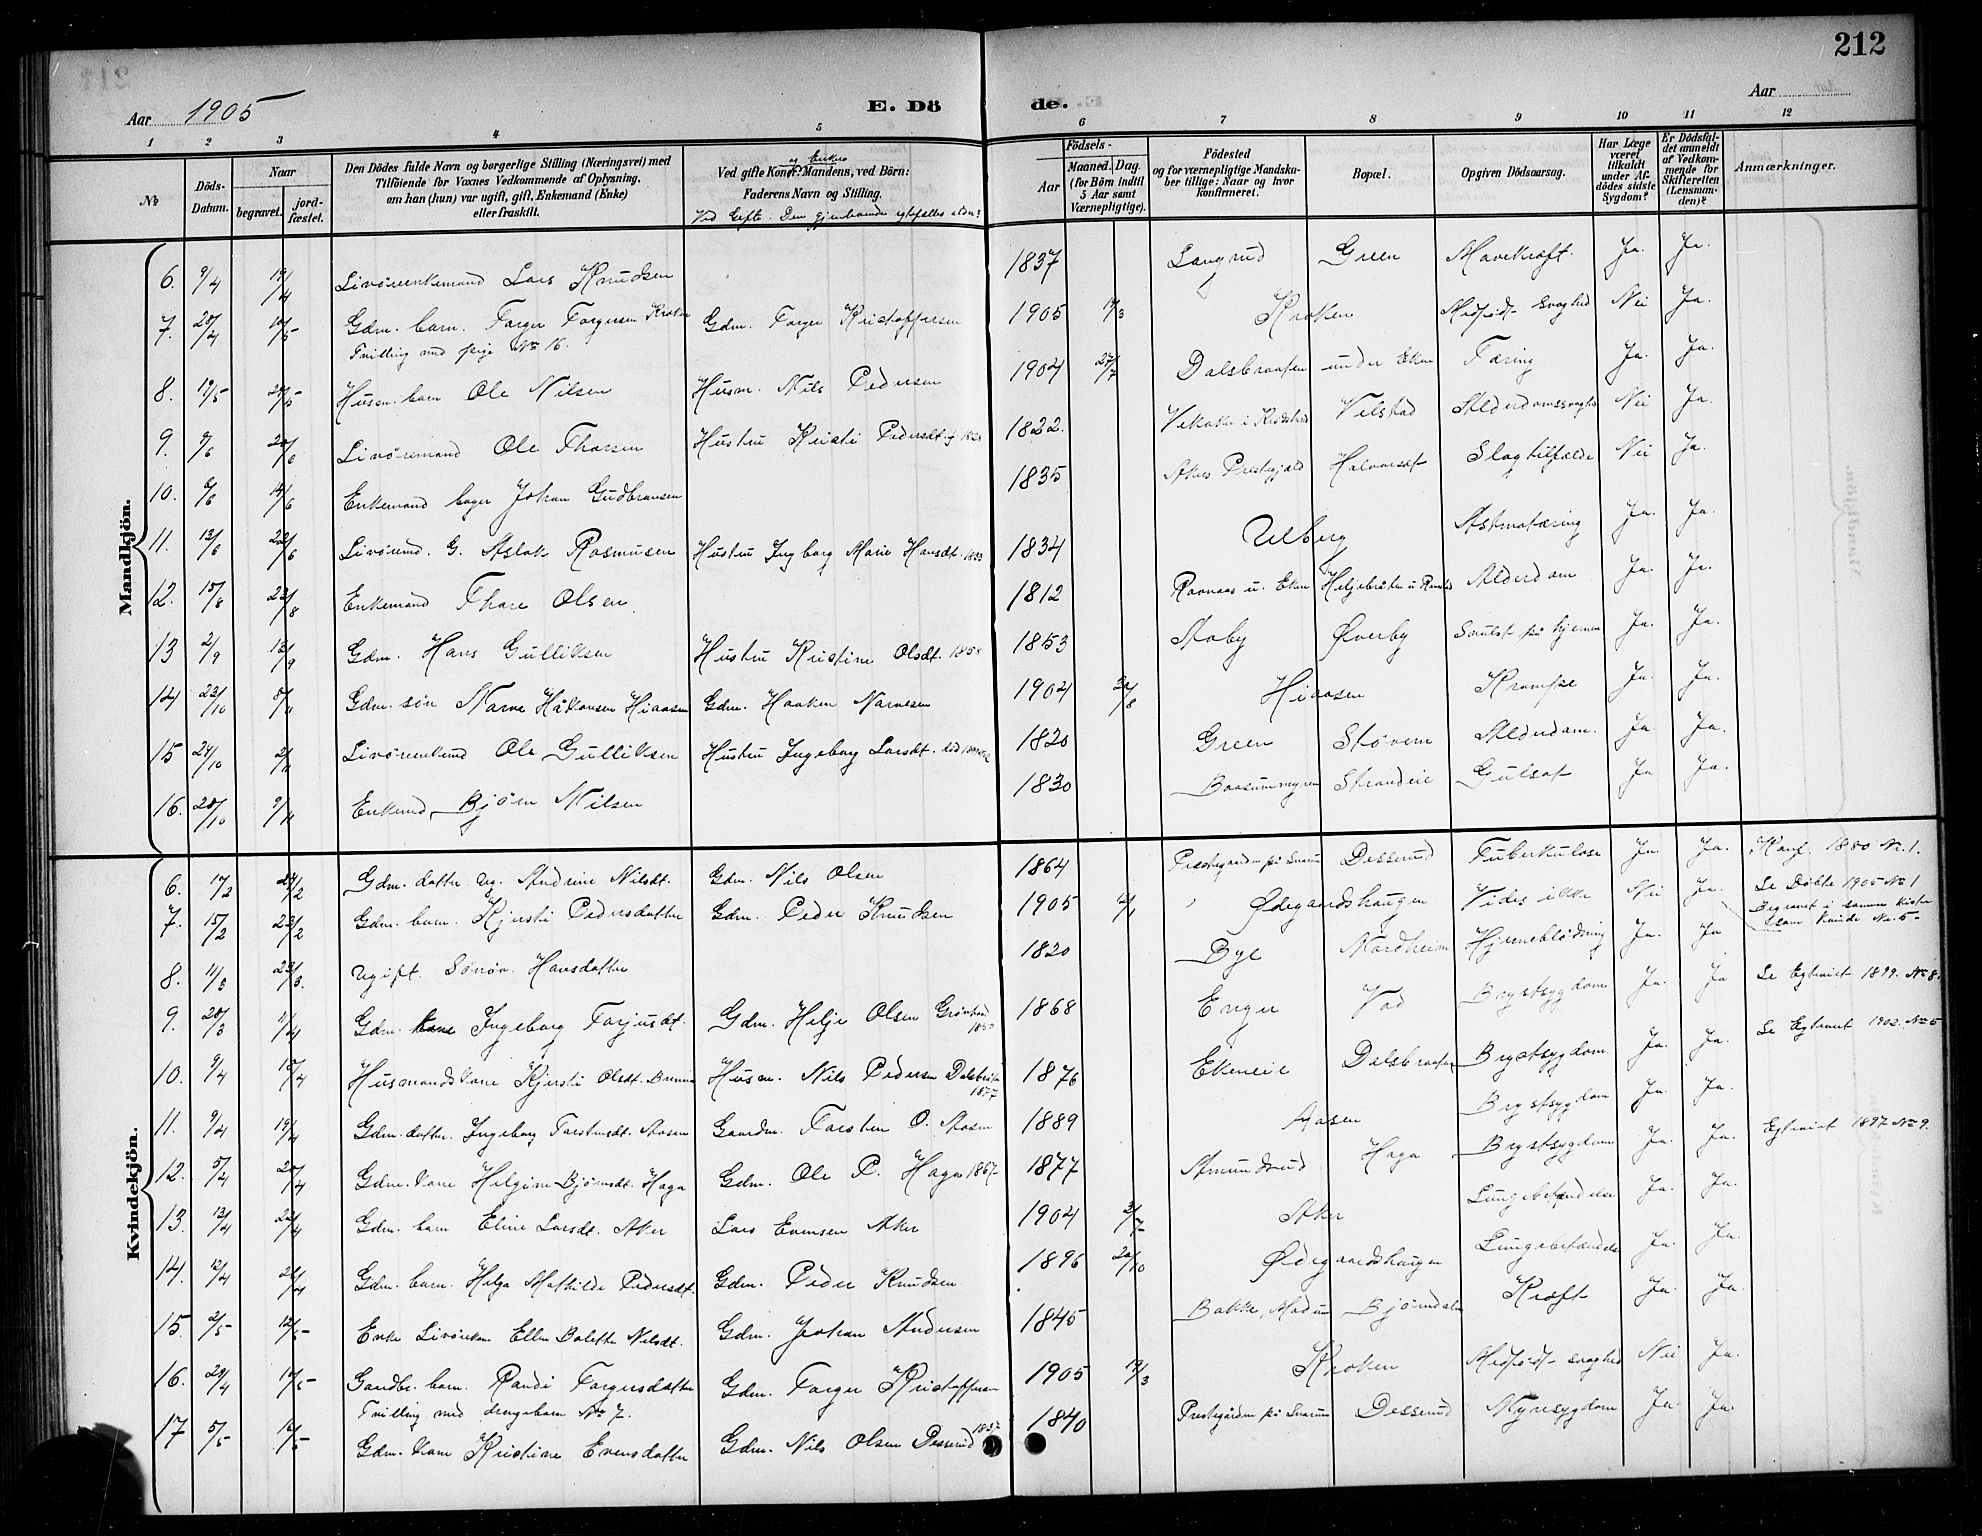 212
Aar 1905
E. Dö
de.
Aar
1 2 3 4 5 6 7 8 9 10 11 12
№
Döds-Datum.
Naar
begravet.
jord-fæstet.
Den Dödes fulde Navn og borgerlige Stilling (Næringsvei) med
Tilföiende for Voxnes Vedkommende af Oplysning,
om han (hun) var ugift, gift, Enkemand (Enke)
eller fraskilt.
og Enker
Ved gifte Koner: Mandens, ved Börn:
Faderens Navn og Stilling.
Födsels-
Aar
Maaned. Dag.
(for Börn indtil 5 Aar samt Værnepligtige).
Födested
og for værnepligtige Mandska-
ber tillige: Naar og hvor
konfirmeret.
Bopæl.
Opgiven Dödsaarsag.
Har Læge været tilkaldt under Af-dödes sidste Sygdom?
Er Dödsfal-det anmeldt af Vedkom-mende for Skifteretten (Lensman-den)?
Anmærkninger.
Mandkjön.
6. 9/4 19/4 Livøreenkemand Lars Knudsen 1837 Langrud Green Mavekræft. Ja. Ja.
7. Gdm. barn. Torger Torgersen Kroken Gdm. Torger Kristoffersen 1905 Kroken Medfødt svaghed Nei Ja.
Tvilling med pige No 16.
8. Husm. barn Ole Nilsen Husm. Nils Pedersen 1904 27/7 Dalsbraaten under Eken Tæring Ja. Ja.
9. Livøremand Ole Thorsen Hustru Kristi Pedersdt 1822. Vilstad Alderdomssvaghed Nei Ja.
10. 6/6 14/6 Enkemand Johan Gudbransen 1835 Akers Prestegjeld Halvorsdt Slagtilfælde Nei Ja.
11. 13/6 22/6 Livøremd. G. Aslak Rasmusen Hustru Ingborg Marie Hansdt. 1834 Ulberg Astmatæring Ja. Ja.
12. 15/8 23/8 Enkemand Thore Olsen. 1812 Ravnaas u. Eken Helgebråten u. Alderdom Ja. Ja.
13 2/9 13/9 Gdm. Hans Gulliksen Hustru Kristine Olsdt. 1858 1853 Staby Øverby Svulst på hjernen Ja. Ja.
14 23/10 8/11 Gdm. søn Narve Håkonsen Hiaasen Gdm. Haaken Narvesen 1904 Hiaasen Krampe Ja. Ja.
15 24/10 2/11 Livøreenkemd Ole Gulliksen Hustru Ingeborg Larsdt. 1820 Green Støvern Alderdom. Ja Ja.
16. 28/10 9/11 Enkemd. Bjørn Nilsen 1830 Strandeie Gulsot Ja Ja.
Kvindekjön.
6. 17/2 Gdm. datter. ug. Andrine Nilsdt. Gdm. Nils Olsen 1864 Prestegaarden på Snarum Desserud Tuberkulose Ja. Ja. Konf. 1880 Nr. 1.
7. 15/2 23/2 Gdm. barn. Kjersti Pedersdatter Gdm. Peder Knudsen 1905 Ødegaardshaugen Vides ikke Nei Ja. Se Døbte 1905 No 1
Begravet i samme kiste
som Kvinde No. 5-
8. 11/3 23/3. Ugift. Sønøv. Hansdatter 1820 Bye Nordheim Hjerneblødning Ja. Ja
9. 28/3 11/4 Gdm. kone Ingeborg Torjusdt. Gdm. Helje Olsen 1868 Enger Vad Brystsygdom Ja. Ja Se Egteviet 1899. No 8.
10. 9/4 Husmandskone Kjersti Olsdt. Husm. Nils Pedersen Dalsbråten 1877 1876 Ekeneie Dalsbraaten Brystsygdom. Ja. Ja. Se Egteviet 1902. No 5
11. 9/4 19/4 Gdm. datter. Ingeborg Torstensdt. Aasen Gaardm. Torsten O. Aasen 1889 Aasen Brystsygdom Ja. Ja.
12. 5/4 Gdm. kone Helgine Bjørnsdt. Haga Gdm. Ole P. Haga 1867 1877 Amundsrud Haga Brystsygdom Ja. Ja. Egteviet 1897 No 9.
13. 13/4 22/4 Gdm. barn Eline Larsdt. Aker Lars Evensen Aker 1904 Aker Lungebetændelse Ja. Ja.
14. 12/4 Gdm. barn. Helga Mathilde Pedersdt. Gdm. Peder Knudsen. 1896 Ødegaardshaugen Lungebetændelse Ja. Ja.
15. 2/5 12/5 Enke Livørekone Ellen Bolette Nilsdt. Gdm. Johan Andersen 1845 Bakke, Modum Bjørndalen Kræft Ja. Ja.
16. Gaardbr. barn. Randi Torgersdatter Gdm. Torger Kristoffersen 1905 Kroken Medfødt svaghed Nei Ja.
Tvilling med drengebarn No 7.
17 5/5 Gdm. kone Kristiane Evensdatter Gdm. Nils Olsen Desserud 1837 1840 Prestegården på Snarum Desserud Nyresygdom Ja Ja.